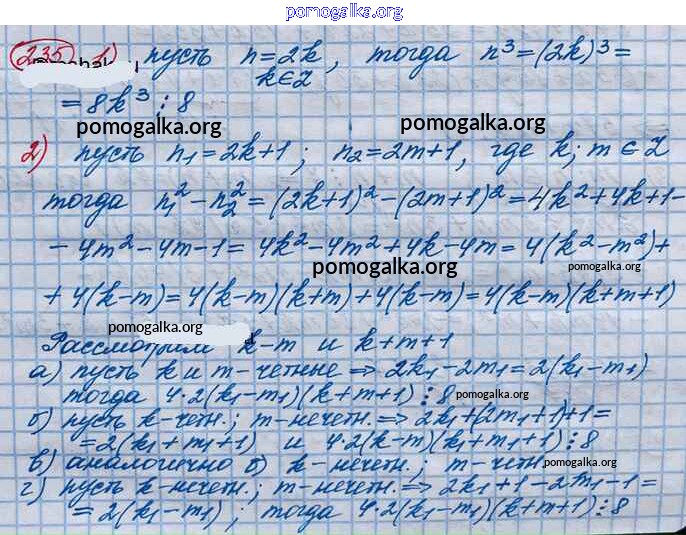 pomogalka.org
235 1) пусть n=2k, тогда n³=(2k)³=
k∈Z
=8k³⋮8
pomogalka.org pomogalka.org
2) пусть n₁=2k+1; n₂=2m+1, где k; m∈Z
тогда n₁²-n₂²=(2k+1)²-(2m+1)²=4k²+4k+1-
-4m²-4m-1=4k²-4m²+4k-4m=4(k²-m²)+
pomogalka.org pomogalka.org
+4(k-m)=4(k-m)(k+m)+4(k-m)=4(k-m)(k+m+1)
pomogalka.org
Рассмотрим k-m и k+m+1
а) пусть k и m-четные ⇒ 2k₁-2m₁=2(k₁-m₁)
тогда 4·2(k₁-m₁)(k+m+1)⋮8 pomogalka.org
б) пусть k-четн.; m-нечетн. ⇒ 2k₁+(2m₁+1)+1=
=2(k₁+m₁+1) и 4·2(k-m)(k₁+m₁+1)⋮8
в) аналогично б) k-нечетн.; m-четн. pomogalka.org
г) пусть k-нечетн.; m-нечетн. ⇒ 2k₁+1-2m₁-1=
=2(k₁-m₁); тогда 4·2(k₁-m₁)(k+m+1)⋮8